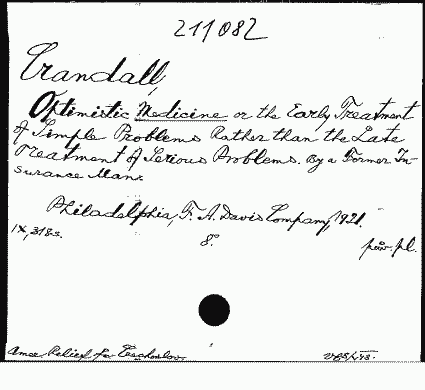 211082
Crandall,
Optimistic Medicine or the Early Treatment
of Simple Problems Rather than the Late
Treatment of Serious Problems. By a Former In-
surance Man.
Philadelphia, F. A. Davis Company, 1921.
IX, 318 s. 8°. pův. pl.
Amer. Relief for Czechoslov.